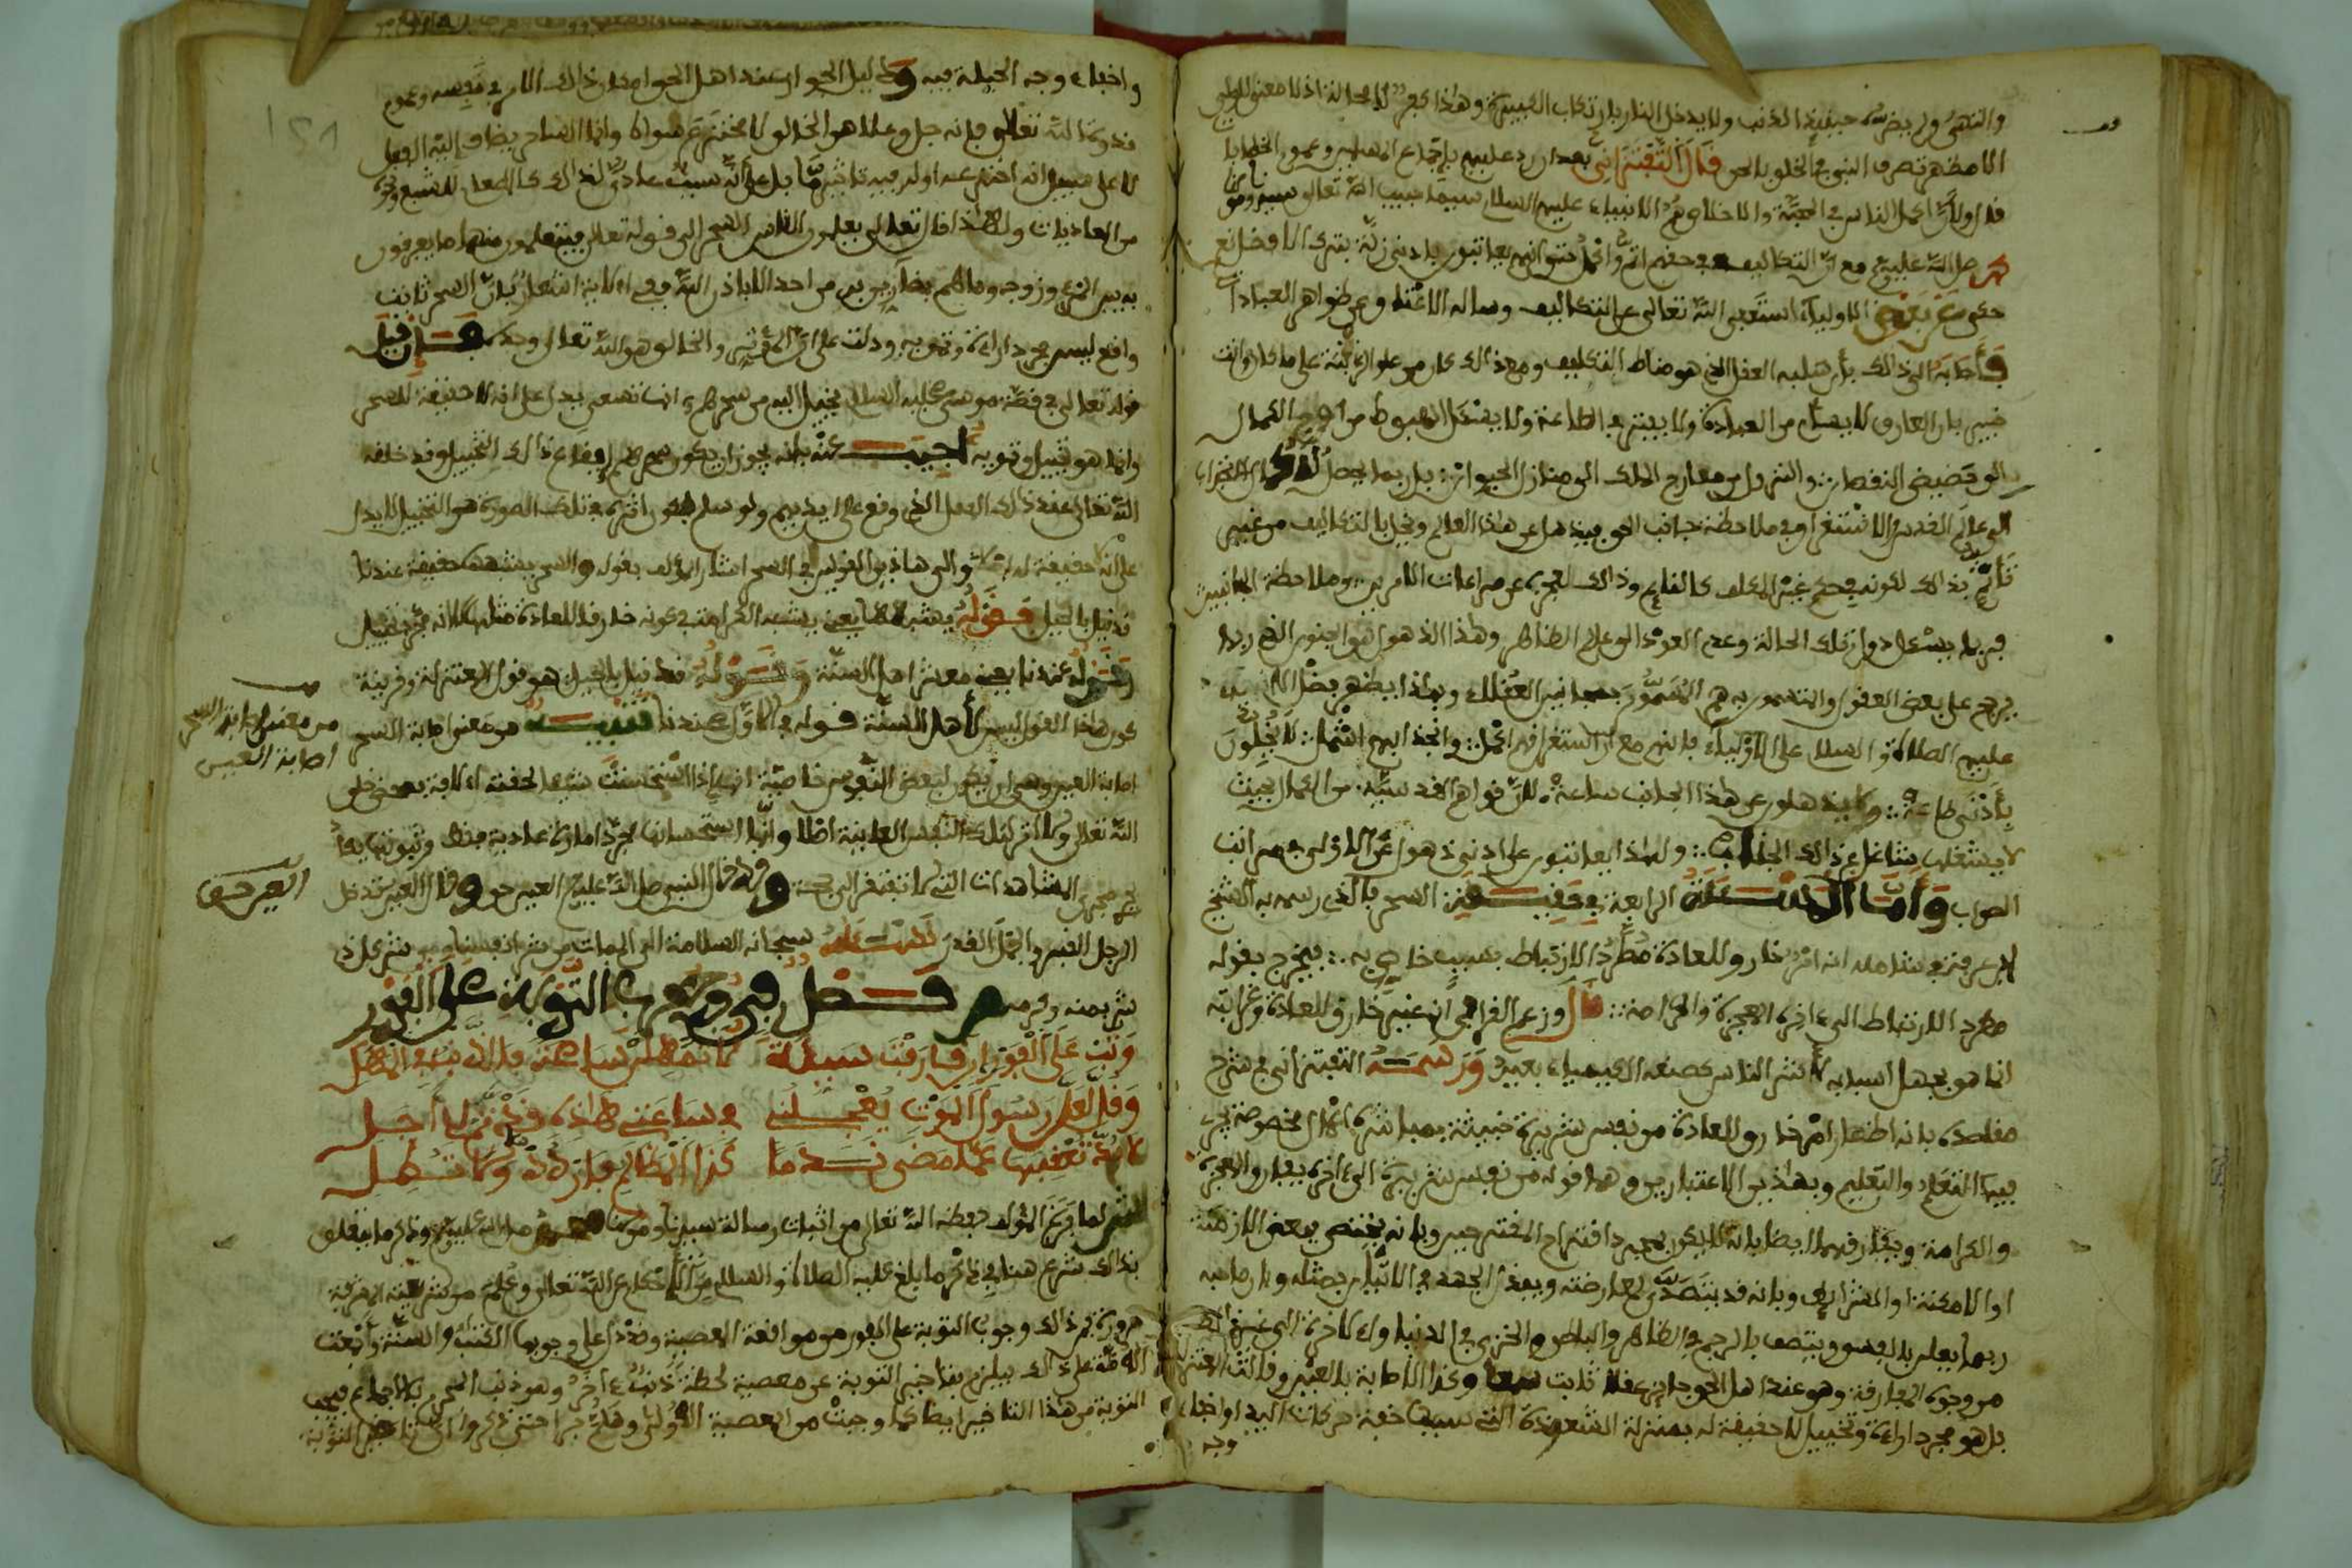 والنهي ولم يضره حينئذ الذنب ولا يدخل النار بارتكاب الكبيرة وهذا كفر لا محالة اذ لا معنى للولي
الا مظهر تصرف النبي في الخلق بالحق قال التفتزاني بعد ان رد عليهم باجماع المسلمين وعموم الخطابات
قد اولا اكمل الناس في المحبة والاخلاص هم الانبياء عليهم السلام سيما حبيب الله تعالى سيدنا ومولانا
محمد صلى الله عليه وسلم مع ان التكاليف في حقهم اتم واكمل حتى انهم يعاتبون بادنى زلة بترك الافضل نعم
حكي عن بعض الاولياء استعفى الله تعالى عن التكاليف وساله الاعتاق عن ظواهر العبادات
فأجابه الى ذلك بأن سلبه العقل الذي هو مناط التكليف ومع ذالك كان من علو المرتبة على ما كان وانت
خبير بان العارف لا يسأم من العبادة ولا يفتر في الطاعة ولا يسأل الهبوط من اوج الكمال
الى حضيض النقصان والنزول من معارج الملك الى منازل الحيوان بل ربما يحصل له كمال الانجذاب
الى عالم القدس والاستغراق في ملاحظة جانب الحق فيذهل عن هذا العالم ويخل بالتكاليف من غير
تأثيم بذالك لكونه في حكم غير المكلف كالنائم وذالك لعجزه عن مراعات الامرين وملاحظة الجانبين
فربما يسئل دوام تلك الحالة وعدم العود الى عالم الظاهر وهذا الذهول هو الجنون الذي ربما
يرجح على بعض العقول والمتسمون به هم المسمون بمجانين العقلاء وبهذا يظهر فضل الانبياء
عليهم الصلاة والسلام على الاولياء فانهم مع ان استغراقهم اكمل وانجذابهم اشمل لا يخلون
بأدنى طاعة ولا يذهلون عن هذا الجانب ساعة لان قواهم القدسية من الكمال بحيث
لا يشغلها شاغل عن ذالك الجناب ولهذا يعاتبون على ادنى ذهول عن الاولى في مراتب
الصواب وأما المسئلة الرابعة في حقيقة السحر بالذي رسمه به الشيخ
ابن عرفة في شامله انه امر خارق للعادة مطرد الارتباط بسبب خاص به فيخرج بقوله
مطرد الارتباط الى اخره المعجزة والكرامة قال وزعم القرافي انه غير خارق للعادة وغرابته
انما هو بجهل اسبابه لأكثر الناس كصنعة الكيمياء بعيد ورسمه التفتزاني في شرح
مقاصده بانه اظهار امر خارق للعادة من نفس شريرة خبيثة بمباشرة اعمال مخصوصة يجري
فيها التعلم والتعليم وبهذين الاعتبارين وهما قوله من نفس شريرة الى اخره يفارق المعجزة
والكرامة ويفارقهما ايضا بانه لا يكون بمجرد اقتراح المقترحين وبانه يختص ببعض الازمنة
او الامكنة او الشرائط وبانه قد يتصدى لمعارضته ويبذل الجهد في الاتيان بمثله وبان صاحبه
ربما يعلن بالفسق ويتصف بالرجس في الظاهر والباطن والخزي في الدنيا والاخرة الى غير ذالك
من وجوه المفارقة وهو عند اهل الحق جائز عقلا ثابت سمعا وكذا الاصابة بالعين وقالت المعتزلة
بل هو مجرد اراءة وتخييل لا حقيقة له بمنزلة الشعوذة التي سببها خفة حركات اليد او اخفاء
وجه
واخفاء وجه الحيلة فيه ودليل الجواز عند اهل الحق امكان ذالك الامر في نفسه وعموم
قدرة الله تعالى فانه جل وعلا هو الخالق لا مخترع سواه وانما الساحر يضاف اليه الفعل
لا على سبيل انه اخترعه او له فيه تاثير ما بل على أنه سبب عادي لذالك كالطعام للشبع ونحوه
من العاديات ولهذا قال تعالى يعلمون الناس السحر الى قوله تعالى فيتعلمون منهما ما يفرقون
به بين المرء وزوجه وما هم بضارين به من احد الا باذن الله ففي الاية اشعار بأن السحر ثابت
واقع ليس مجرد اراءة وتمويه ودلت على ان المؤثر والخالق هو الله تعالى وحده فإن قيل
قوله تعالى في قصة موسى عليه السلام يخيل اليه من سحرهم انها تسعى يدل على انه لا حقيقة للسحر
وانما هو تخييل وتمويه أجيب عنه بانه يجوز ان يكون سحرهم ايقاع ذالك التخييل وقد خلقه
الله تعالى عند ذلك الفعل الذي وقع على ايديهم ولو سلم فكون اثره في تلك الصورة هو التخييل لا يدل
على انه لا حقيقة له اصلا والى هاذين القولين في السحر اشار المؤلف بقوله والسحر يشبهها حقيقة عندنا
قد قيل بالحيل فقوله يشبهها يعني يشبه الكرامة في كونه خارقا للعادة مثلها لا انه مجرد تخييل
وقوله عندنا يعني معشر اهل السنة وقوله قد قيل بالحيل هو قول المعتزلة وقرينة
كون هذا القول ليس لأهل السنة قوله في الاول عندنا تنبيه من معنى اصابة السحر
اصابة العين وهي ان يكون لبعض النفوس خاصية انها اذا استحسنت شيئا لحقته الافة بمحض خلق
الله تعالى ولا اثر لتلك النفس العاينة اصلا وانما استحسانها مجرد امارة عادية فقط وثبوتها يكاد
يجري مجرى المشاهدات التي لا تفتقر الى حجة وقد قال النبي صلى الله عليه وسلم العين حق وقال العين تدخل
الرجل القبر والجمل القدر نسئله سبحانه السلامة الى الممات من شر انفسنا ومن شر كل ذي
شر بمنه وكرمه فصل في وجوب التوبة على الفور
وتب على الفور ان قارفت سيئة لا تمهلن ساعة فالذنب في المهل
وقل لعل رسول الموت يعجلني في ساعتي هاذه قد تم لي أجل
لا بد تعقبها عما مضى ندما كذا المظالم فاردد ولا تطل
لما فرغ المؤلف حفظه الله تعالى من اثبات رسالة سيدنا ومولانا محمد صلى الله عليه وسلم وذكر ما يتعلق
بذالك شرع هنا في ذكر ما بلغ عليه الصلاة والسلام من الاحكام عن الله تعالى وعلم من شريعته المشرفة
ضرورة فمن ذالك وجوب التوبة على الفور من مواقعة المعصية وقد دل على وجوبها الكتاب والسنة وأجمعت
الامة على ذالك فيلزم بتاخير التوبة عن معصية لحظة ذنب اخر وهو ذنب التاخير بالاجماع فتجب
التوبة من هذا التاخير ايضا كما وجبت من المعصية الاولى وهلم جرا حتى ذكروا ان تاخير التوبة
من معنى اصابة السحر
اصابة العين
العين حق